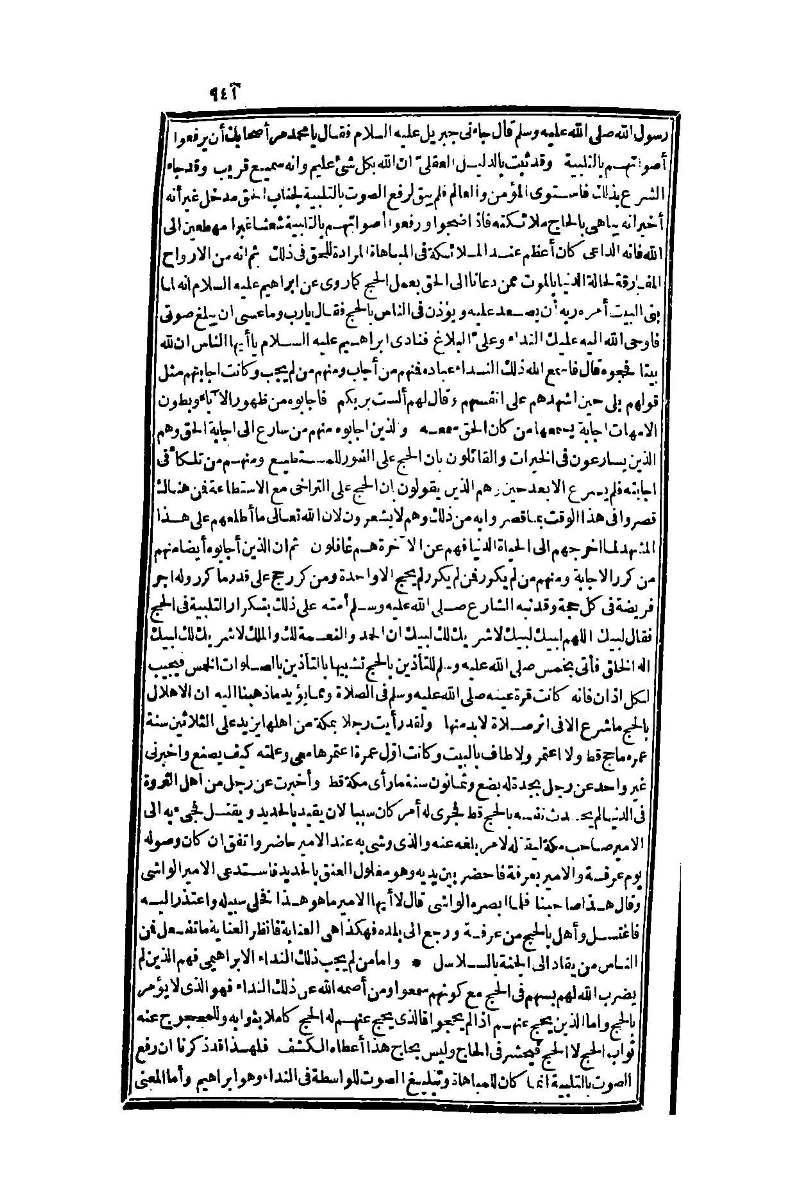 ٩٤٢
رسول الله صلى الله عليه وسلم قال جاءنى جبريل عليه السلام فقال يا محمد مر أصحابك أن يرفعوا
أصواتهم بالتلبية وقد ثبت بالدليل العقلى ان الله بكل شئ عليم وانه سميع قريب وقد جاء
الشرع بذلك فاستوى المؤمن والعالم فلم يبق لرفع الصوت بالتلبية لجناب الحق مدخل غير أنه
أخبر أنه يباهى بالحاج ملائكته فاذا ضجوا ورفعوا أصواتهم بالتلبية شعثا غبرا مهطعين الى
الله فانه الداعى كان أعظم عند الملائكة فى المباهاة المرادة للحق فى ذلك ثم انه من الارواح
المفارقة لحالة الدنيا بالموت ممن دعانا الى الحق بعمل الحج كما روى عن ابراهيم عليه السلام انه لما
بنى البيت أمره ربه أن يصعد عليه ويؤذن فى الناس بالحج فقال يارب وما عسى ان يبلغ صوتى
فاوحى الله اليه عليك النداء وعلىّ البلاغ فنادى ابراهيم عليه السلام يا أيها الناس ان لله
بيتا فحجوه قال فاسمع الله ذلك النداء عباده فمنهم من أجاب ومنهم من لم يجب وكانت اجابتهم مثل
قولهم بلى حين اشهدهم على انفسهم وقال لهم ألست بربكم فاجابوه من ظهور الآباء وبطون
الامهات اجابة يسمعها من كان الحق سمعه والذين اجابوه منهم من سارع الى اجابة الحق وهم
الذين يسارعون فى الخيرات والقائلون بان الحج على الفور للمستطيع ومنهم من تلكأ فى
اجابته فلم يسرع الا بعد حين وهم الذين يقولون ان الحج على التراخى مع الاستطاعة فمن هنالك
قصروا فى هذا الوقت بما قصروا به من ذلك وهم لا يشعرون لان الله تعالى ما أطلعهم على هذا
المشهد لما اخرجهم الى الحياة الدنيا فهم عن الآخرة هم غافلون ثم ان الذين أجابوه أيضا منهم
من كرر الاجابة ومنهم من لم يكرر فمن لم يكرر لم يحج الا واحدة ومن كرر حج على قدر ما كرر وله اجر
فريضة فى كل حجة وقد نبه الشارع صلى الله عليه وسلم أمته على ذلك بتكرار التلبية فى الحج
فقال لبيك اللهم لبيك لبيك لا شريك لك لبيك ان الحمد والنعمة لك والملك لا شريك لك لبيك
اله الخلق فأتى بخمس صلى الله عليه وسلم للتأذين بالحج تشبيها بالتأذين بالصلوات الخمس فيجيب
لكل اذان فانه كانت قرة عينه صلى الله عليه وسلم فى الصلاة ومما يؤيد ما ذهبنا اليه ان الاهلال
بالحج ما شرع الا فى اثر صلاة لابد منها ولقد رأيت رجلا بمكة من اهلها يزيد على الثلاثين سنة
عمره ما حج قط ولا اعتمر ولا طاف بالبيت وكانت اوّل عمرة اعتمرها معى وعلمته كيف يصنع واخبرنى
غير واحد عن رجل بجدة له بضع وثمانون سنة ما رأى مكة قط وأخبرت عن رجل من اهل الثروة
فى الدنيا لم يحدث نفسه بالحج قط فجرى له أمر كان سببا لان يقيد بالحديد ويقتل فجىء به الى
الامير صاحب مكة ليقتله لامر بلغه عنه والذى وشى به عند الامير حاضر واتفق ان كان وصوله
يوم عرفة والامير بعرفة فاحضر بين يديه وهو مغلول العنق بالحديد فاستدعى الامير الواشى
وقال هذا صاحبنا فلما ابصره الواشى قال لا أيها الامير ما هو هذا فخلى سبيله واعتذر اليه
فاغتسل وأهل بالحج من عرفة ورجع الى بلده فهكذا هى العناية فانظر العناية ما تفعل فمن
الناس من يقاد الى الجنة بالسلاسل * واما من لم يجب ذلك النداء الابراهيمى فهم الذين لم
يضرب الله لهم بسهم فى الحج مع كونهم سمعوا ومن أصمه الله عن ذلك النداء فهو الذى لا يؤمر
بالحج واما الذين يحج عنهم اذا لم يحجوا فالذى يحج عنهم له الحج كاملا بثوابه وللمحجوج عنه
ثواب الحج لا الحج فيحشر فى الحاج وليس بحاج هذا أعطاه الكشف فلهذا قد ذكرنا ان رفع
الصوت بالتلبية انما كان للمباهاة وتبليغ الصوت للواسطة فى النداء وهو ابراهيم وأما المعنى